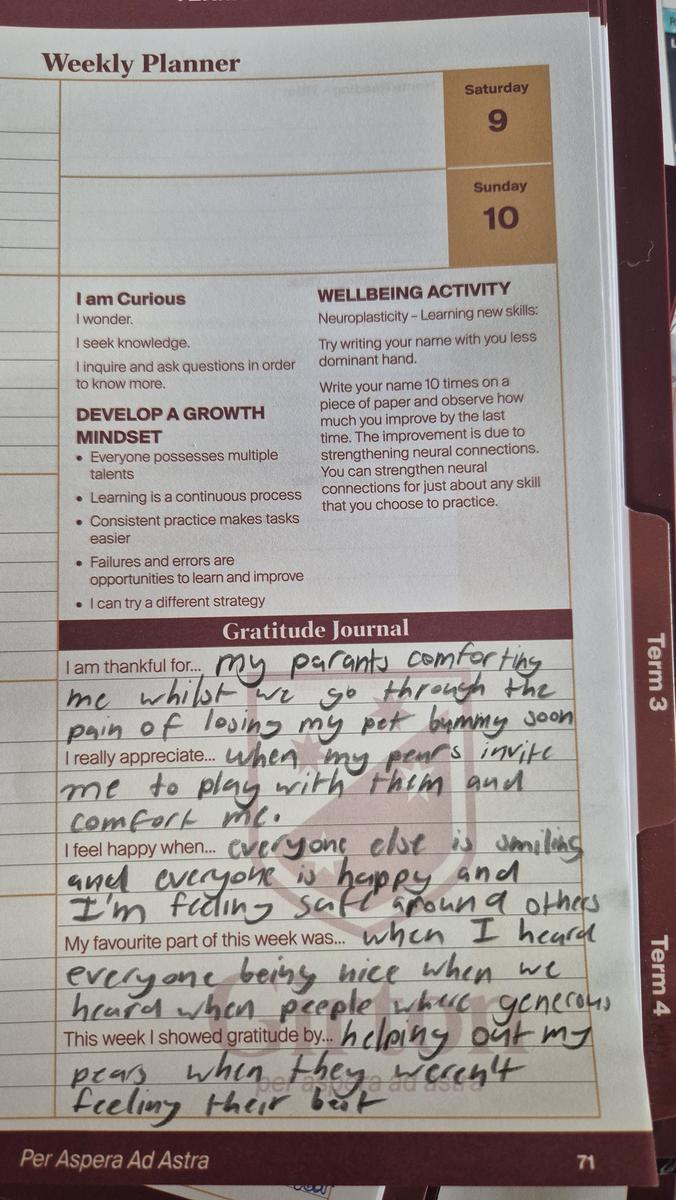 Weekly Planner
Saturday
9
Sunday
10
I am Curious
I wonder.
I seek knowledge.
I inquire and ask questions in order
to know more.
DEVELOP A GROWTH
MINDSET
• Everyone possesses multiple
talents
• Learning is a continuous process
• Consistent practice makes tasks
easier
• Failures and errors are
opportunities to learn and improve
• I can try a different strategy
WELLBEING ACTIVITY
Neuroplasticity – Learning new skills:
Try writing your name with you less
dominant hand.
Write your name 10 times on a
piece of paper and observe how
much you improve by the last
time. The improvement is due to
strengthening neural connections.
You can strengthen neural
connections for just about any skill
that you choose to practice.
Gratitude Journal
I am thankful for... my parants comforting
me whilst we go through the
pain of losing my pet bummy soon
I really appreciate... when my pears invite
me to play with them and
comfort me.
I feel happy when... everyone else is smiling
and everyone is happy and
I'm feeling safe around others
My favourite part of this week was... when I heard
everyone being nice when we
heard when peeple where generous
This week I showed gratitude by... helping out my
pears when they weren't
feeling their best
per aspera ad astra
Term 3
Term 4
Per Aspera Ad Astra
71